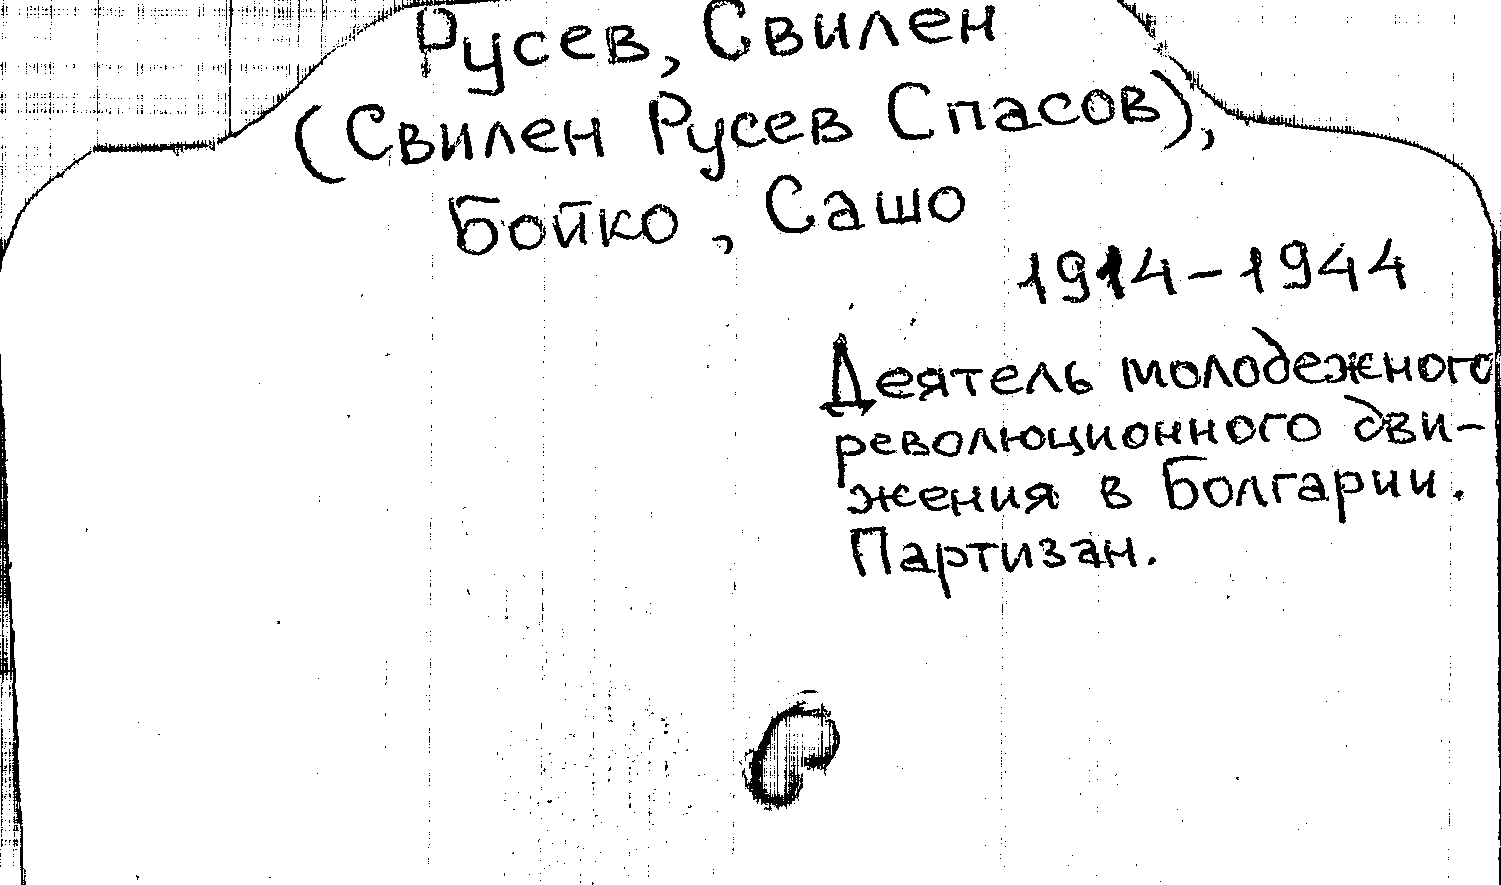 Русев, Свилен
(Свилен Русев Спасов),
Бойко, Сашо
1914-1944
Деятель молодежного
революционного дви-
жения в Болгарии.
Партизан.